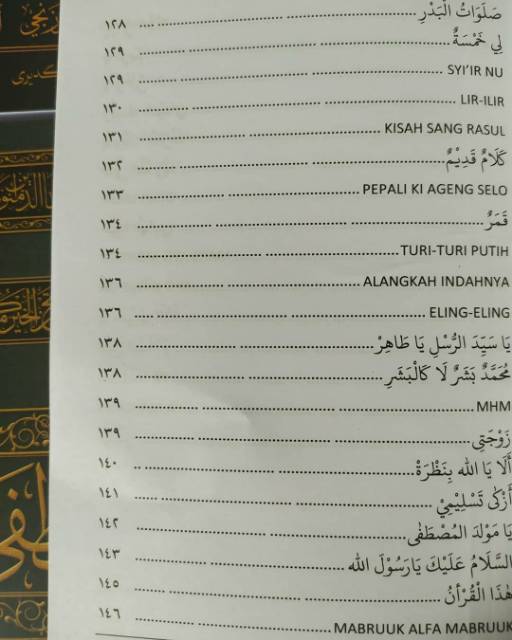 صَلَوَاتُ الْبَدْرِ ١٢٨
لِي خَمْسَةٌ ١٢٩
SYI'IR NU ١٢٩
LIR-ILIR ١٣٠
KISAH SANG RASUL ١٣١
كَلَامٌ قَدِيْمٌ ١٣٢
PEPALI KI AGENG SELO ١٣٣
قَمَرٌ ١٣٤
TURI-TURI PUTIH ١٣٤
ALANGKAH INDAHNYA ١٣٦
ELING-ELING ١٣٦
يَا سَيِّدَ الرُّسْلِ يَا طَاهِرْ ١٣٨
مُحَمَّدٌ بَشَرٌ لَا كَالْبَشَرِ ١٣٨
MHM ١٣٩
زَوْجَتِي ١٣٩
أَلَا يَا الله بِنَظْرَةْ ١٤٠
أَزْكَى تَسْلِيْمِيْ ١٤١
يَا مَوْلِدَ الْمُصْطَفَى ١٤٢
السَّلَامُ عَلَيْكَ يَارَسُوْلَ الله ١٤٣
هٰذَا الْقُرْأٰنُ ١٤٥
MABRUUK ALFA MABRUUK ١٤٦